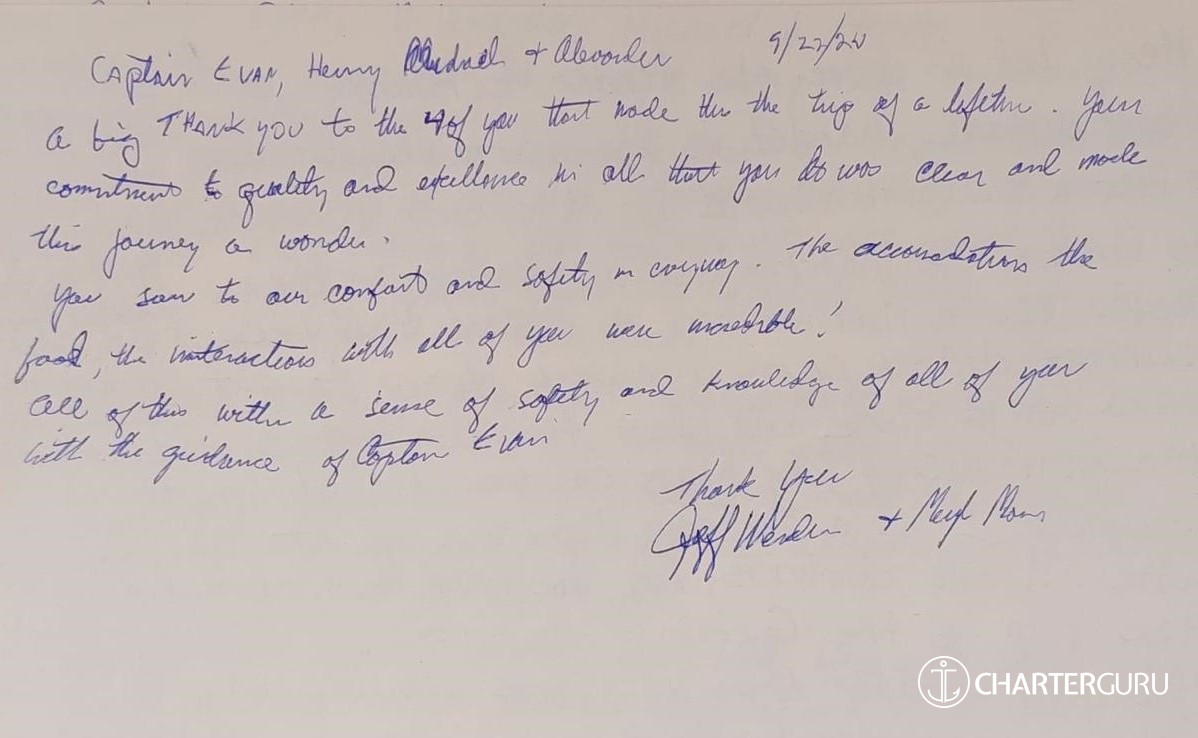 Captain Evan, Henry & Alexander 9/22/20
A big THANK YOU to the 4 of you that made this the trip of a lifetime. Your
commitment to quality and excellence in all that you do was clear and made
this journey a wonder.
You saw to our comfort and safety in everyway. The accomodations the
food, the interactions with all of you were incredible!
All of this with a sense of safety and knowledge of all of you
with the guidance of Captain Evan
Thank You
Jeff + Meryl
CHARTERGURU